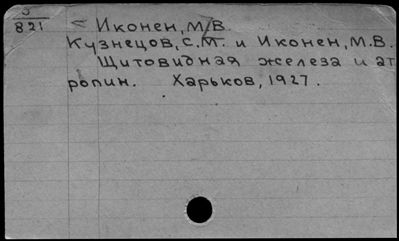 5
821
= Иконен, М.В.
Кузнецов, С.М. и Иконен, М.В.
Щитовидная железа и ат
ропин. Харьков, 1927.